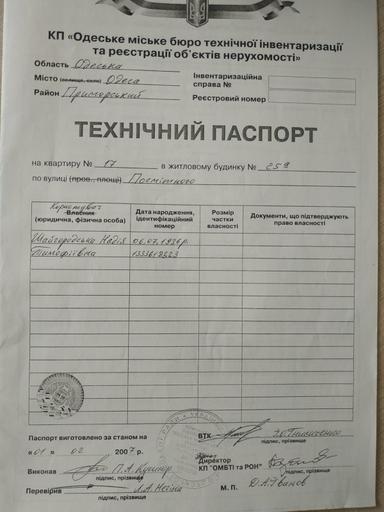 КП «Одеське міське бюро технічної інвентаризації
та реєстрації об'єктів нерухомості»
Область Одеська
Місто (селище, село) Одеса
Район Приморський
Інвентаризаційна
справа №
Реєстровий номер
ТЕХНІЧНИЙ ПАСПОРТ
на квартиру № 17 в житловому будинку № 25а
по вулиці (пров., площі) Посмітного
Користувач
Власник
(юридична, фізична особа)
Дата народження,
ідентифікаційний
номер
Розмір
частки
власності
Документи, що підтверджують
право власності
Надія 06.07.1936р.
Тимофіївна
Паспорт виготовлено за станом на
«01» 02 2007 р.
Виконав П.А.
підпис, прізвище
Перевірив Л.А.
підпис, прізвище
ВТК
підпис, прізвище
Директор
КП "ОМБТІ та РОН"
підпис, прізвище
М. П. Д.А. Іванов